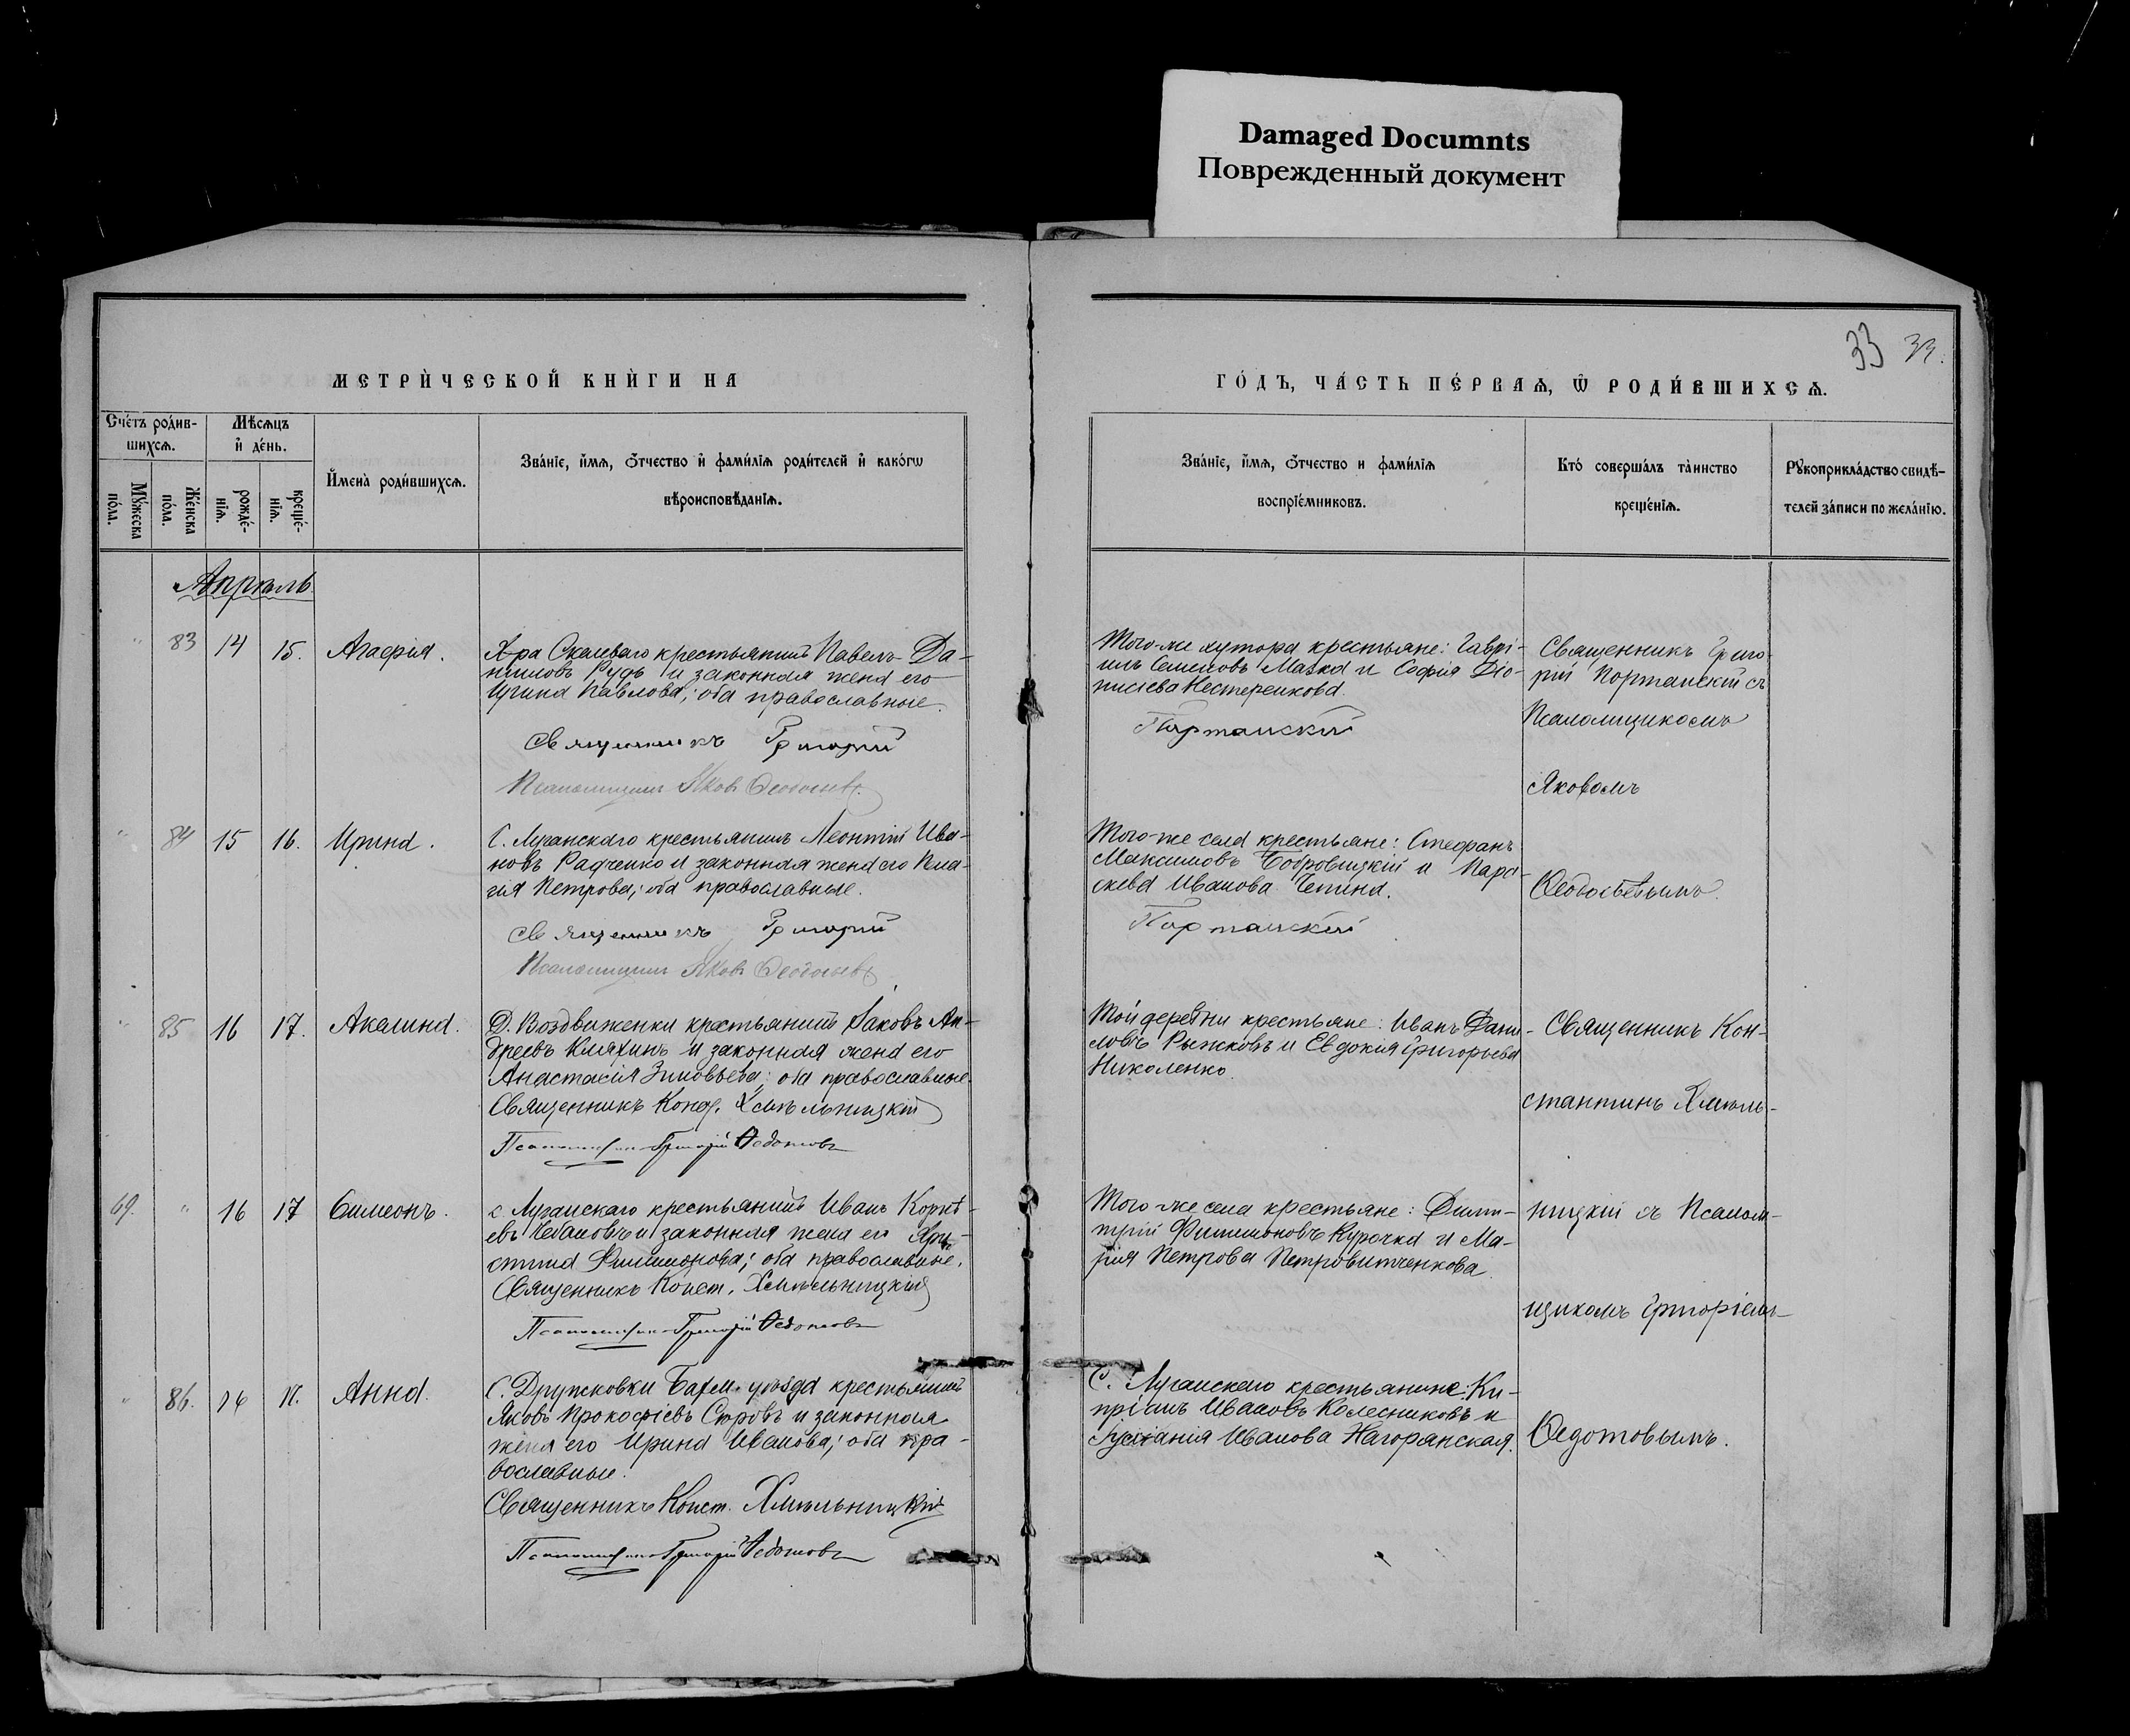 Damaged Documnts
Поврежденный документ
33 33.
МЕТРИЧЕСКОЙ КНИГИ НА
ГОДЪ, ЧАСТЬ ПЕРВАЯ, Ѿ РОДИВШИХСЯ.
Счетъ родив-
шихся.
Мѣсяцъ
и день.
Мужеска
пола.
Женска
пола.
рожде-
нія.
креще-
нія.
Имена родившихся.
Званіе, имя, отчество и фамилія родителей и какогѡ
вѣроисповѣданія.
Званіе, имя, отчество и фамилія
воспріемниковъ.
Кто совершалъ таинство
крещенія.
Рукоприкладство свидѣ-
телей записи по желанію.
Апрѣль
" 83 14 15. Агафія.
Х-ра Скелеваго крестьянинъ Павелъ Да-
ниловъ Рудь и законная жена его
Ирина Павлова; оба православные.
Священникъ Григорій
Псаломщикъ Яковъ Ѳеодосьевъ
Того-же хутора крестьяне: Гаврі-
илъ Семеновъ Мазка и Софія Діо-
нисіева Нестеренкова.
Портанскій
Священникъ Григо-
рій Портанскій съ
Псаломщикомъ
Яковомъ
Ѳеодосьевымъ.
" 84 15 16. Ирина.
С. Луганскаго крестьянинъ Леонтій Ива-
новъ Радченко и законная жена его Пела-
гія Петрова; оба православные.
Священникъ Григорій
Псаломщикъ Яковъ Ѳеодосьевъ
Того-же села крестьяне: Стефанъ
Максимовъ Бобровицкій и Парас-
кева Иванова Чепина.
Портанскій
" 85 16 17. Акелина.
Д. Воздвиженки крестьянинъ Іаковъ Ан-
дреевъ Кляхинъ и законная жена его
Анастасія Зиновьева; оба православные.
Священникъ Конст. Хмѣльницкій
Псаломщикъ Григорій Ѳедотовъ
Той деревни крестьяне: Иванъ Дани-
ловъ Рыжковъ и Евдокія Григорьева
Николенко.
Священникъ Кон-
стантинъ Хмѣль-
ницкій съ Псалом-
щикомъ Григоріемъ
Ѳедотовымъ.
69. " 16 17 Симеонъ.
с. Луганскаго крестьянинъ Иванъ Корнѣ-
евъ Чебановъ и законная жена его Хри-
стина Филимонова; оба православные.
Священникъ Конст. Хмѣльницкій
Псаломщикъ Григорій Ѳедотовъ
Того-же села крестьяне: Дими-
трій Филимоновъ Курочка и Ма-
рія Петрова Петровитченкова.
" 86. 16 17. Анна.
С. Дружковки Бахм. уѣзда крестьянинъ
Яковъ Прокофіевъ Сюровъ и законная
жена его Ирина Иванова; оба пра-
вославные.
Священникъ Конст. Хмѣльницкій
Псаломщикъ Григорій Ѳедотовъ
С. Луганскаго крестьянине: Ки-
пріанъ Ивановъ Колесниковъ и
Иванова Нагорянская.